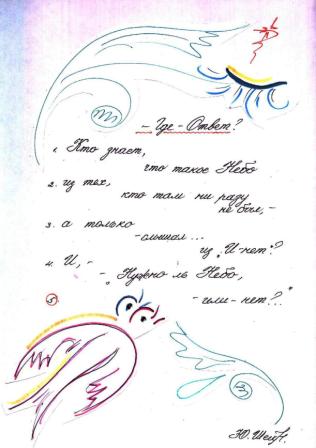 - Где - Ответ?
1. Кто знает,
что такое Небо
2. из тех,
кто там ни разу
не был, -
3. а только
- слышал...
из "И-нет"?
4. И, -
- "Нужно ль Небо,
- или - нет?.."
5.